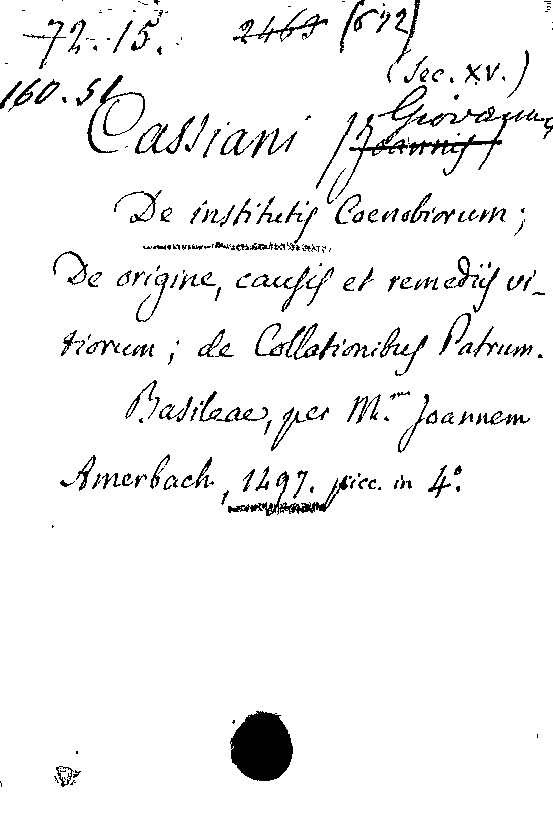 72.15. 2463 (672)
(Sec. XV.)
160.51
Cassiani Giovanni
Joannis
De institutis Coenobiorum;
De origine, causis et remediis vi-
tiorum; de Collationibus Patrum.
Basileae, per M.um Joannem
Amerbach, 1497. picc. in 4°.